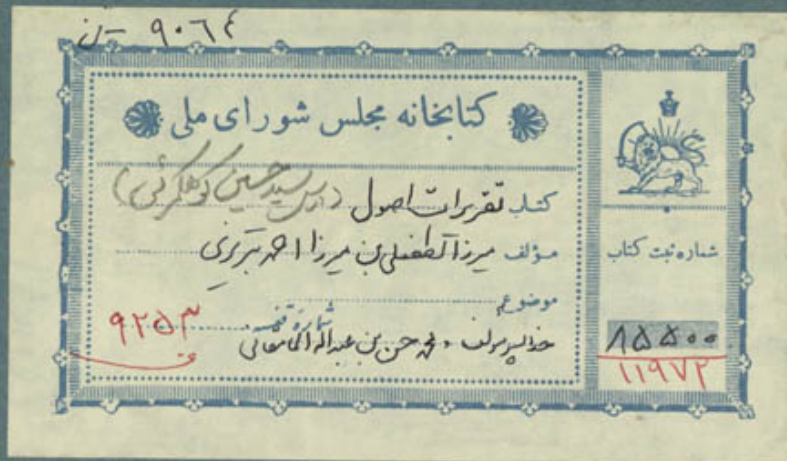 ۹۰۶۴ - ن
کتابخانه مجلس شورای ملی
کتاب تقریرات اصول (درس سید حسین کوهکمرئی)
مؤلف میرزا لطفعلی بن میرزا احمد تبریزی
موضوع
شماره قفسه ۹۲۵۳
خط پسر مولف و محمد حسن بن عبدالله المامقانی
شماره ثبت کتاب
۸۵۵۰۰
۱۱۹۷۲